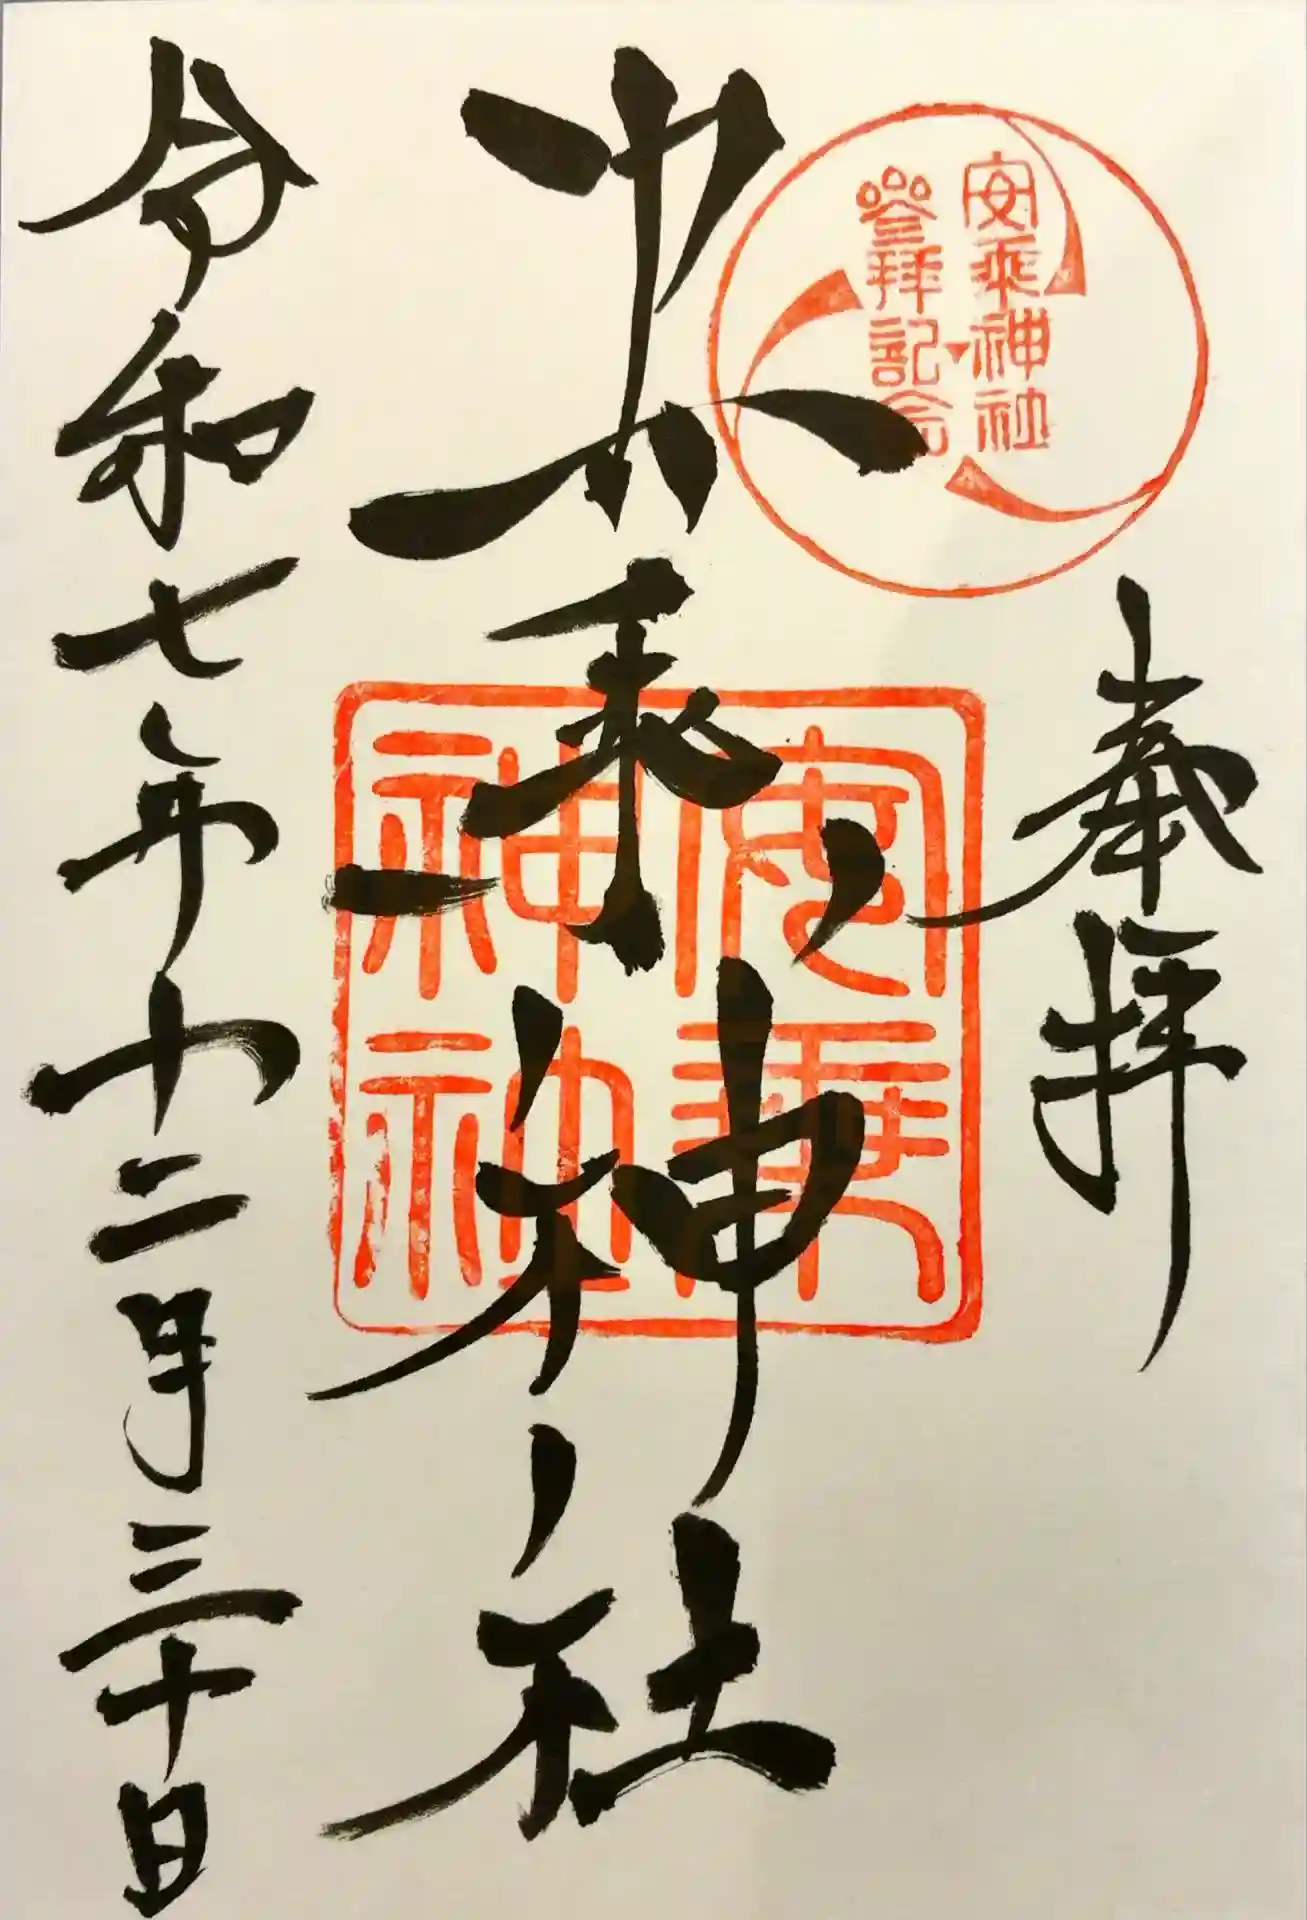 安乗神社
参拝記念
奉拝
安乗神社
安乗
神社
令和七年十二月三十日